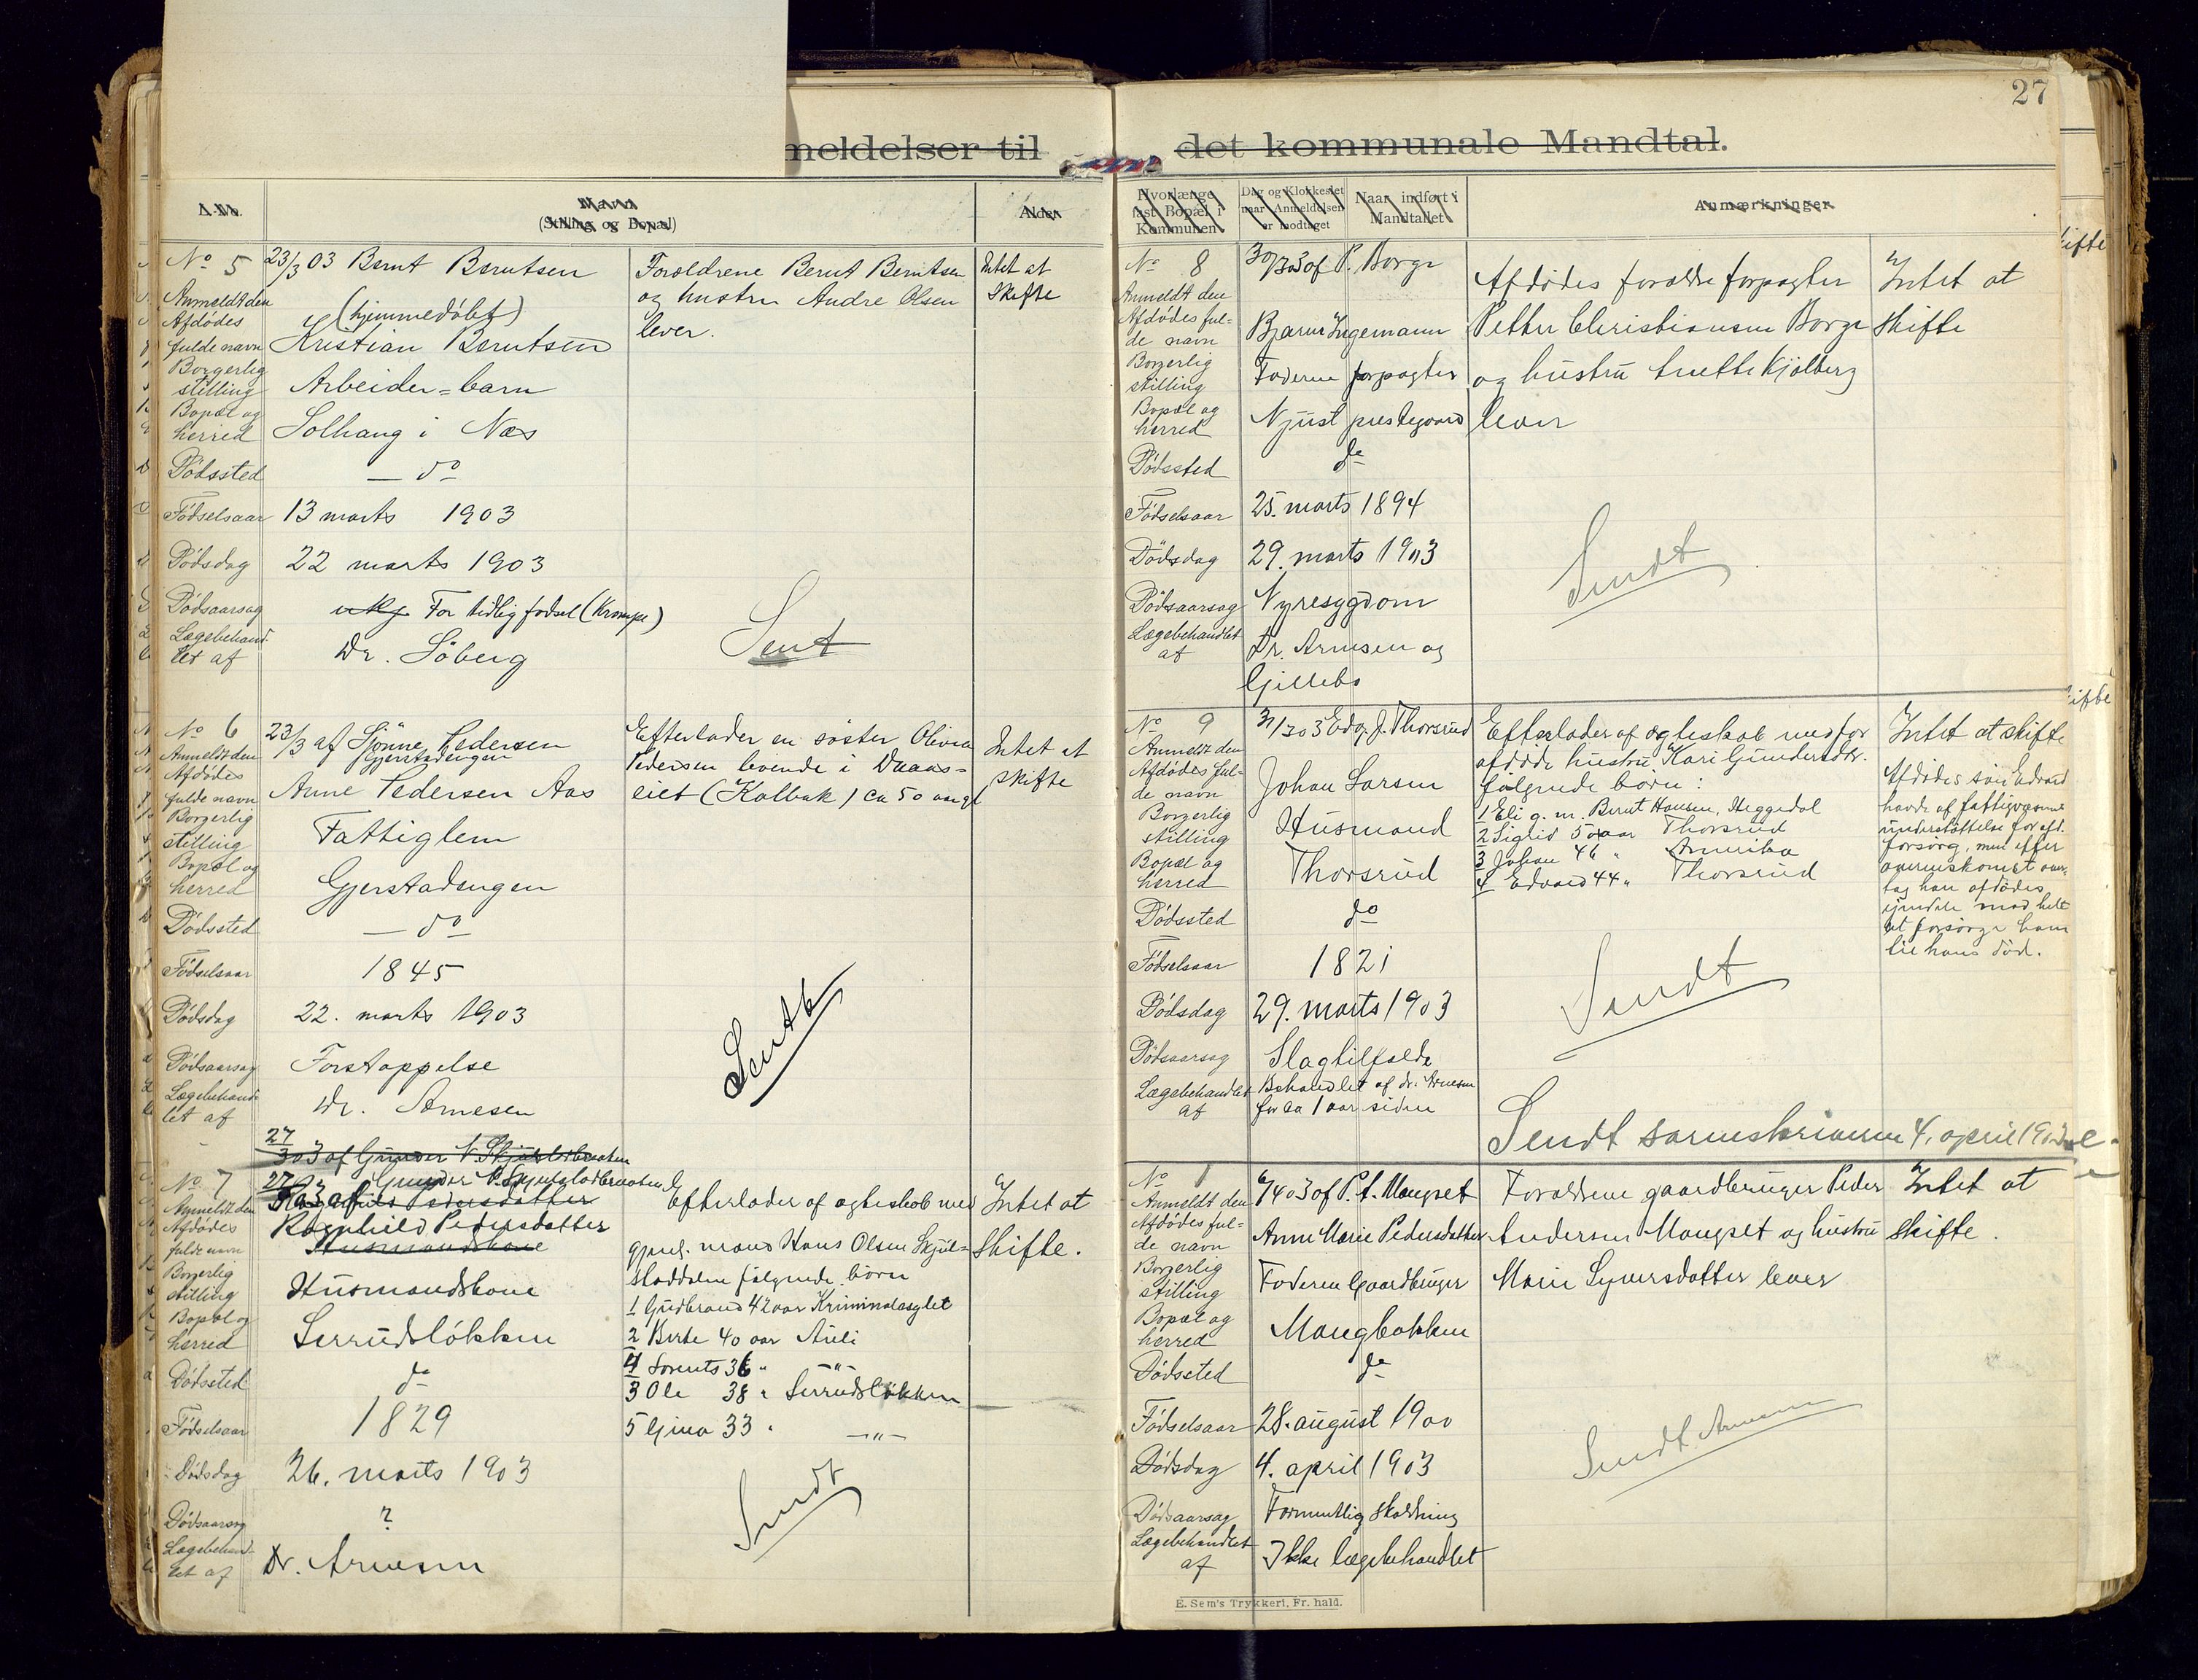 27
meldelser til det kommunale Mandtal.
A.No.
Navn
(Stilling og Bopæl)
Alder
No 5
23/3 03 Bernt Berntsen
Anmeldt den
(hjemmedøbt)
Afdødes
fulde navn Kristian Berntsen
Borgerlig
stilling Arbeider=barn
Bopæl og
herred Solhaug i Næs
Dødssted — do
Fødselsaar 13 marts 1903
Dødsdag 22 marts 1903
Dødsaarsag For tidlig fødsel (Krampe)
Lægebehand-
let af Dr. Söberg
Forældrene Bernt Berntsen
og hustru Andre Olsen
lever.
Sent
Intet at
skifte
No 6
23/3 af Sjönne Pedersen
Gjerstadengen
Anmeldt den
Afdødes
fulde navn Anne Pedersen Aas
Borgerlig
stilling Fattiglem
Bopæl og
herred Gjerstadengen
Dødssted — do
Fødselsaar 1845
Dødsdag 22. marts 1903
Dødsaarsag Forstoppelse
Lægebehand-
let af Dr. Arnesen
Efterlader en søster Olivia
Pedersen levende i
eiet (Kolbuk) ca 50 aar gl
Sendt
Intet at
skifte
27
3 03 af Gunder
No 7
27/3 03 Gunder P.
Anmeldt den Ragnhild Pedersdatter
Afdødes Ragnhild Pedersdatter
fulde navn Husmandskone
Borgerlig
stilling Husmandskone
Bopæl og
herred Serrudsløkken
Dødssted do
Fødselsaar 1829
Dødsdag 26. marts 1903
Dødsaarsag ?
Lægebehand-
let af Dr. Arnesen
Efterlader af ægteskab med
gjenl. mand Hans Olsen Skjul-
staddalen følgende børn
1 Gudbrand 42 aar Kriminalasylet
2 Berte 40 aar Auli
4 Lorents 36 " —"—
3 Ole 38 " Serrudsløkken
5 Gina 33 " —"—
Sendt
Intet at
skifte.
Hvorlænge
fast Bopæl i
Kommunen
Dag og Klokkeslet
naar Anmeldelsen
er modtaget
Naar indført i
Mandtallet
Anmærkninger
No 8
30/3 03 af P. Borge
Anmeldt den
Afdødes ful-
de navn Bjarne Ingemann
Borgerlig
stilling Faderen forpagter
Bopæl og
herred Njust prestegaard
Dødssted do
Fødselsaar 25. marts 1894
Dødsdag 29. marts 1903
Dødsaarsag Nyresygdom
Lægebehandlet
af Dr. Arnesen og
Gillebo
Afdødes forældre forpagter
Petter Christiansen Borge
og hustru Anette Kjølberg
lever
Sendt
Intet at
skifte
No 9
31/3 03 Edv. J. Thorsrud
Anmeldt den
Afdødes ful-
de navn Johan Larsen
Borgerlig
stilling Husmand
Bopæl og
herred Thorsrud
Dødssted do
Fødselsaar 1821
Dødsdag 29. marts 1903
Dødsaarsag Slagtilfælde
Lægebehandlet
af Behandlet af dr. Arnesen
for ca 1 aar siden
Efterlader af ægteskab med før
afdøde hustru Kari Gundersdtr.
følgende børn:
1 Eli g. m. Bernt Hansen, Heggedal
2 Sigrid 50 aar Thorsrud
3 Johan 46 " Amerika
4 Edvard 44 " Thorsrud
Sendt
Intet at skifte
Afdødes søn Edvard
havde af fattigvæsenet
understøttelse for afd.
forsørg, men efter
overenskomst over-
tog han afdødes
eiendele mod helt
at forsørge ham
til hans død.
Sendt sorenskriveren 4. april 1903
No 1
6/4 03 af P. A. Mangset
Anmeldt den
Afdødes ful-
de navn Anne Marie Pedersdatter
Borgerlig
stilling Faderen Gaardbruger
Bopæl og
herred Mangbakken
Dødssted do
Fødselsaar 28. august 1900
Dødsdag 4. april 1903
Dødsaarsag Formentlig skoldning
Lægebehandlet
af Ikke lægebehandlet
Forældrene gaardbruger Peder
Andersen Mangset og hustru
Marie Syversdatter lever
Sendt Arnesen
Intet at
skifte.
E. Sem's Trykkeri, Fr. hald.